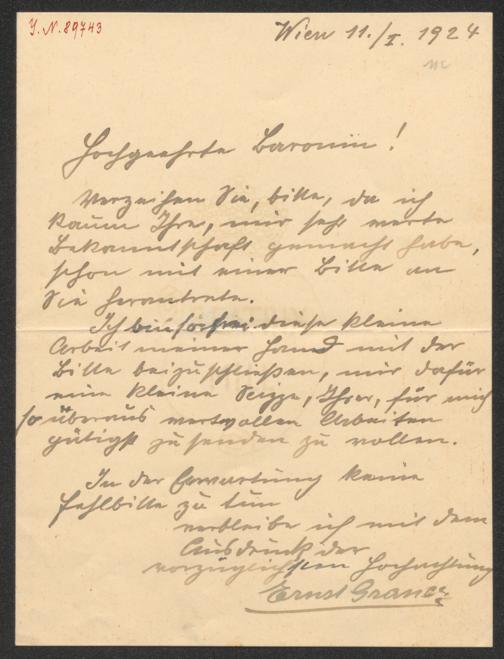 J.N. 89743
Wien 11./I. 1924
Hochgeehrte Baronin!
Verzeihen Sie, bitte, da ich
kaum Ihre, mir sehr werte
Bekanntschaft gemacht habe,
schon mit einer Bitte an
Sie herantrete.
Ich bin so frei diese kleine
Arbeit meiner Hand mit der
Bitte beizuschließen, mir dafür
eine kleine Skizze, Ihrer, für mich
so überaus wertvollen Arbeiten
gütigst zusenden zu wollen.
In der Erwartung keine
Fehlbitte zu tun
verbleibe ich mit dem
Ausdruck der
vorzüglichsten Hochachtung
Ernst